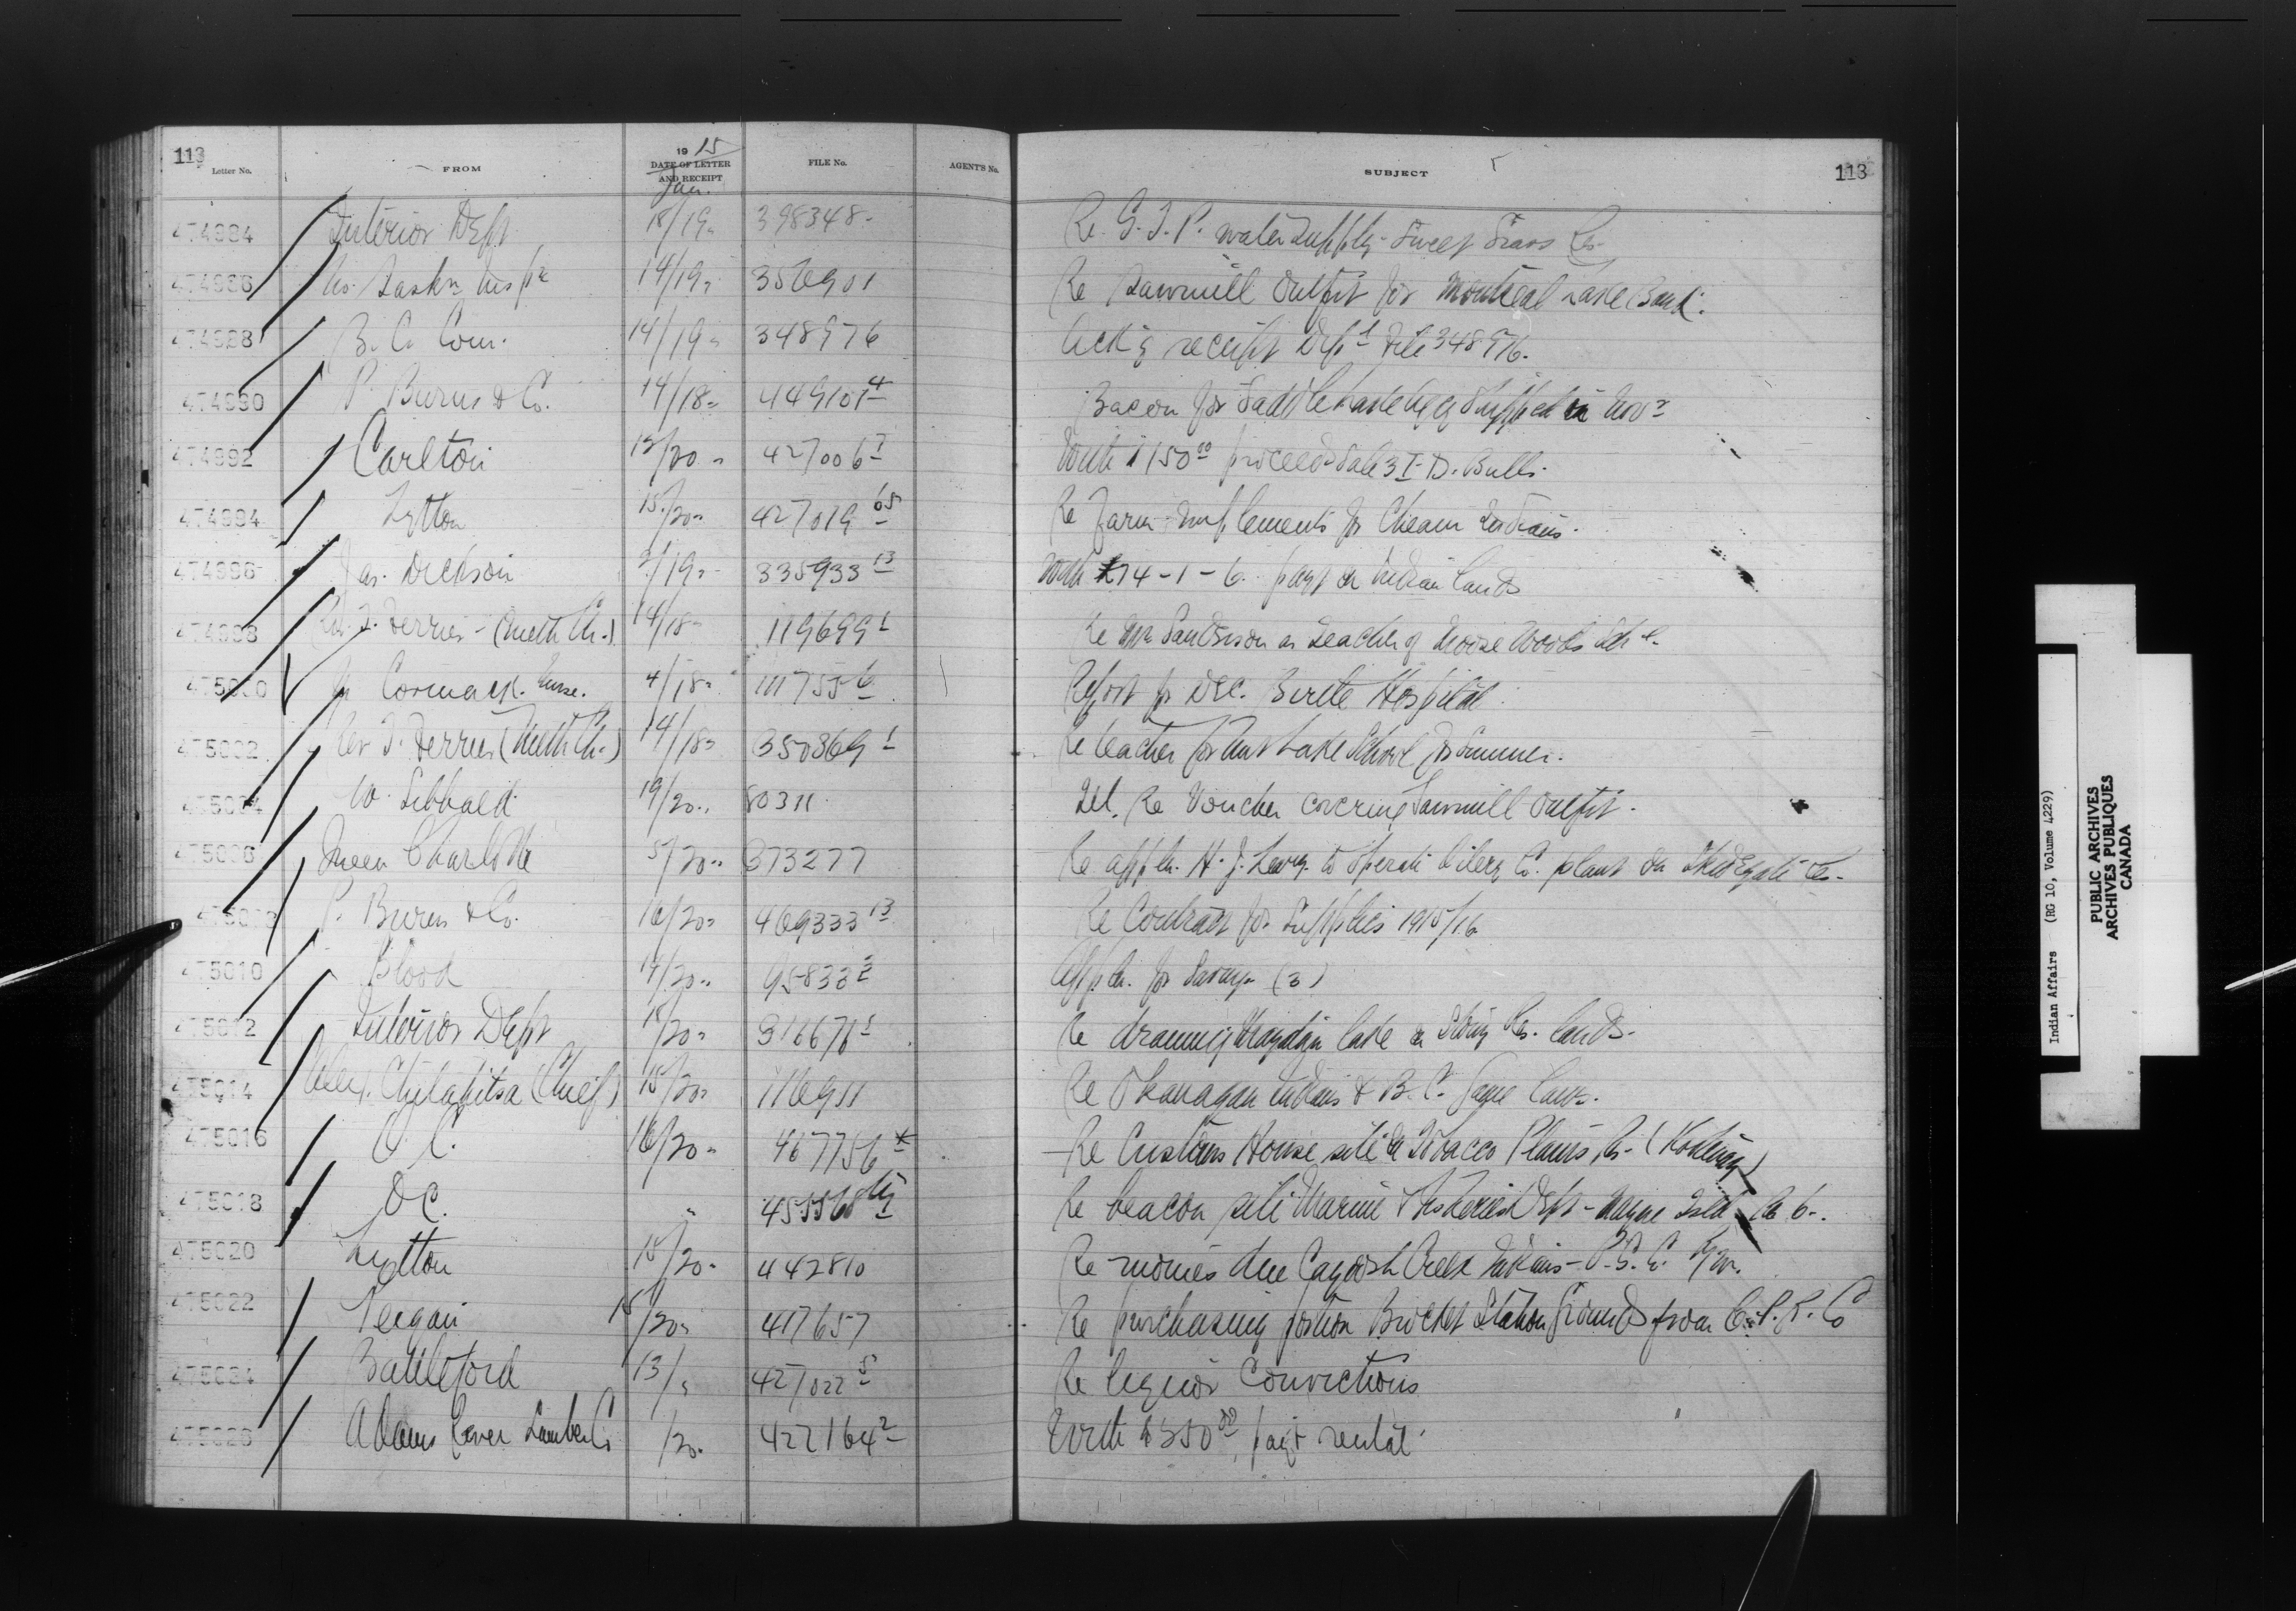 113
Letter No. FROM 19 15 DATE OF LETTER AND RECEIPT FILE No. AGENT'S No. SUBJECT 113
Jan.
474984 Interior Dept 18/19 398348 Re G.T.P. water supply Sweet Grass Res.
474986 No. Saskn Insp 14/19 356901 Re Sawmill Outfit for Montreal Lake Band.
474988 B.C. Com. 14/19 348976 Ack'g receipt Dept file 348976.
474990 P. Burns & Co. 14/18 449101-4 Bacon for Saddle Lake Agcy Shipped in Nov
474992 Carlton 12/20 427006-7 With $150.00 proceeds Sale 3 I.D. Bulls.
474994 Lytton 15/20 427019 65 Re Farm Implements for Cheam Indians.
474996 Jas. Dickson 2/19 335933 13 With 14-1-6 payt on Indian lands
474998 Rev. T. Ferrier (Meth Ch.) 14/18 119699-1 Re Mr Sanderson as Teacher of Moose Woods Sch
475000 Cormack Nurse. 4/18 111755-6 Report for Dec. Birtle Hospital
475002 Rev T. Ferrier (Meth Ch.) 14/18 350369-1 Re teacher for Lake School for Summer.
475004 W. Sibbald 19/20 80311 Tel. Re Voucher covering Sawmill Outfit.
475006 Queen Charlotte 5/20 373277 Re appln. H.J. to Operate Oilery Co. plant on Skidegate Res.
P. Burns & Co. 16/20 469333 13 Re Contract for Supplies 1915/16
475010 Blood 14/20 95833-3 Appln. for (3)
475012 Interior Dept 15/20 316676-1 Re draining Lake Res. lands.
475014 Alex. Chilahitsa (Chief) 15/20 116911 Re Okanagan Indians & B.C. Game Laws.
475016 O.C. 16/20 467756 Re Customs House site on Tobacco Plains R. (Kootenay)
475018 O.C. " 455568 Re beacon site Marine & Fisheries Dept - Mayne Isld B.C.
475020 Lytton 15/20 442810 Re monies due Cayoosh Creek Indians - P.G.E. Ry.
475022 Peigan 15/20 417657 Re purchasing portion Brocket Station Grounds from C.P.R. Co
475024 Battleford 13/ 427022-5 Re liquor Convictions
475026 Adams River Lumber Co /20 422164-2 With $350.00, payt rental
Indian Affairs (RG 10, Volume 4229)
PUBLIC ARCHIVES
ARCHIVES PUBLIQUES
CANADA